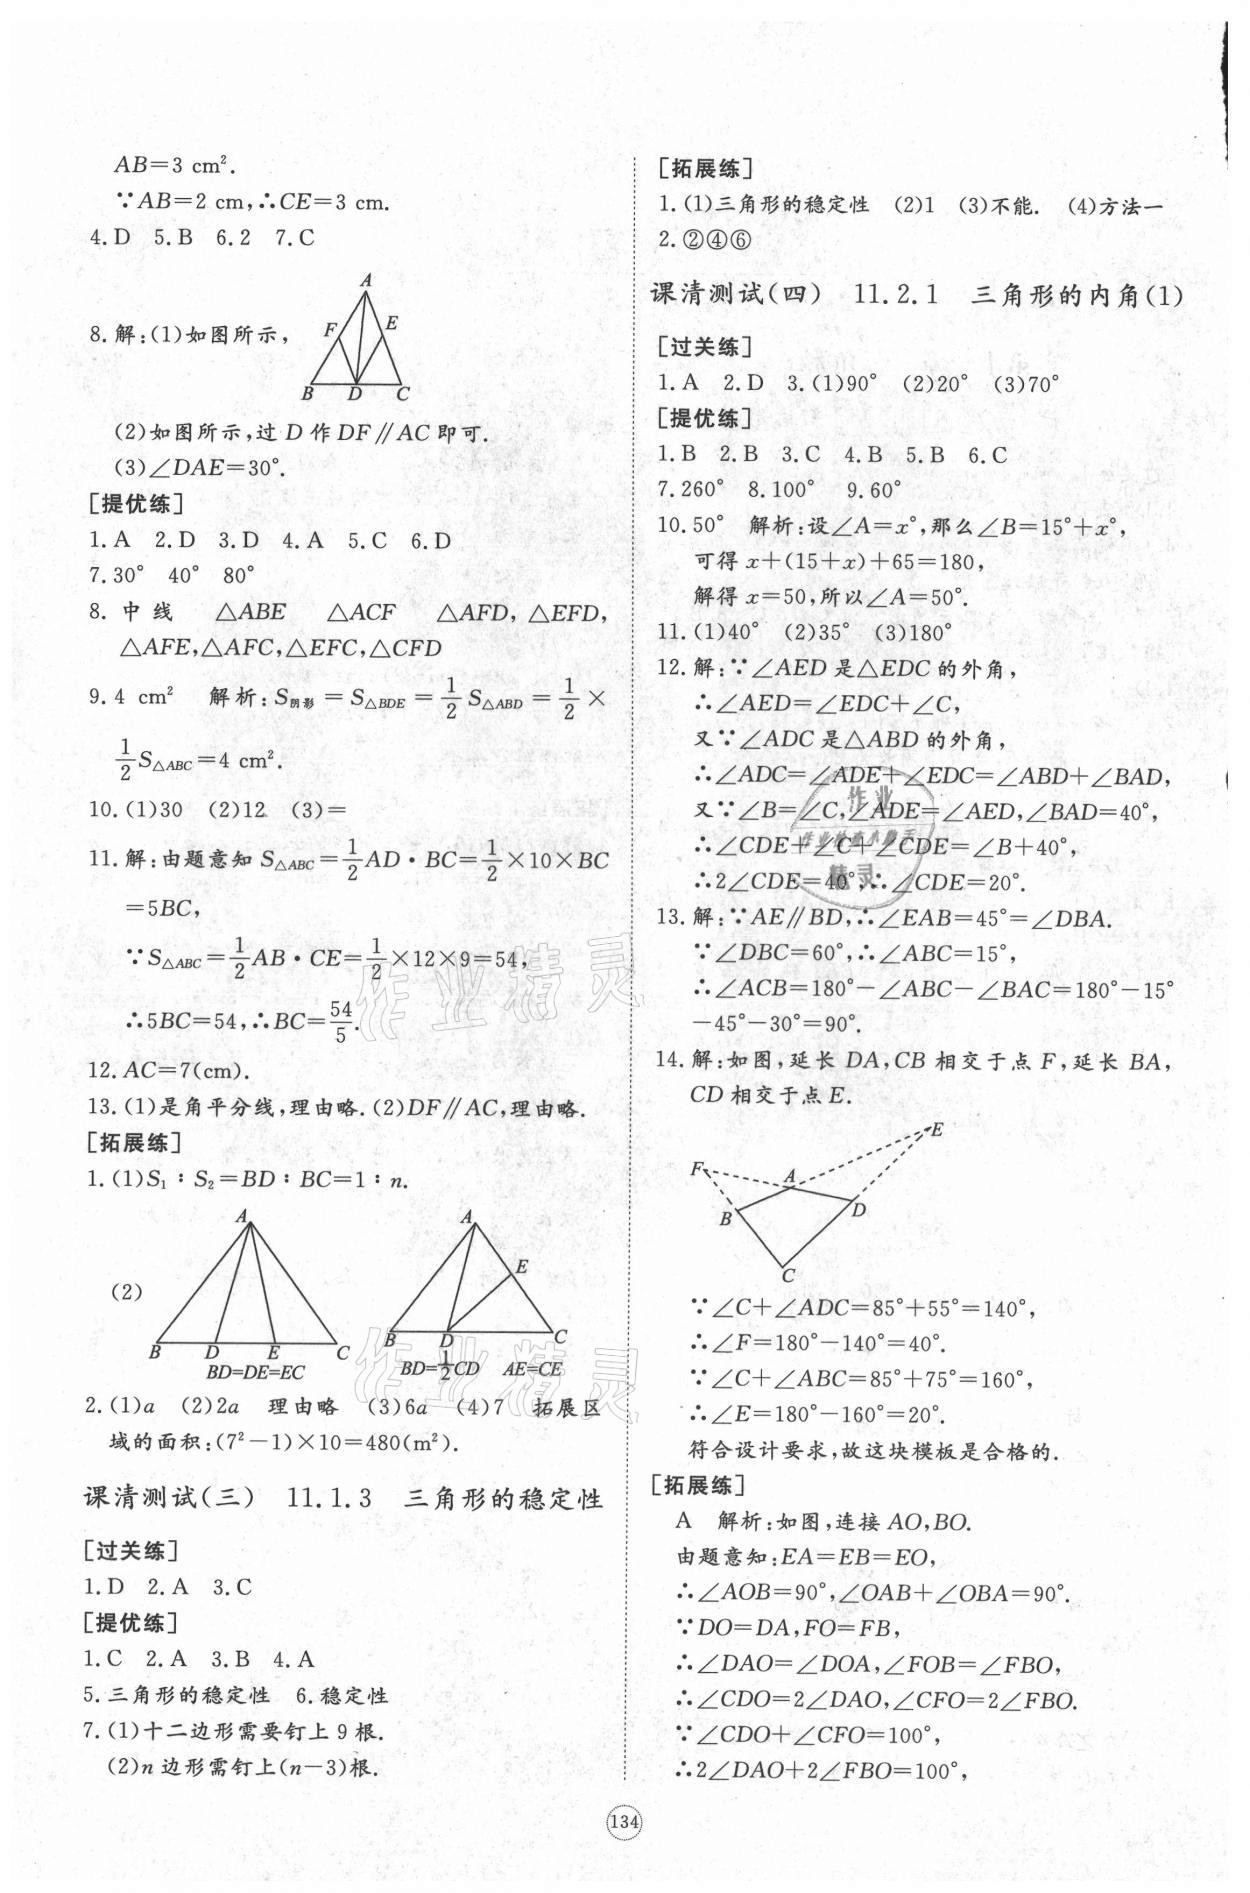 AB=3 cm².
∵AB=2 cm,∴CE=3 cm.
4.D 5.B 6.2 7.C
8.解:(1)如图所示,
A
F E
B D C
(2)如图所示,过 D 作 DF∥AC 即可.
(3)∠DAE=30°.
[提优练]
1.A 2.D 3.D 4.A 5.C 6.D
7.30° 40° 80°
8.中线 △ABE △ACF △AFD,△EFD,
△AFE,△AFC,△EFC,△CFD
9.4 cm² 解析:S阴影=S△BDE=1/2S△ABD=1/2×
1/2S△ABC=4 cm².
10.(1)30 (2)12 (3)=
11.解:由题意知 S△ABC=1/2AD·BC=1/2×10×BC
=5BC,
∵S△ABC=1/2AB·CE=1/2×12×9=54,
∴5BC=54,∴BC=54/5.
12.AC=7(cm).
13.(1)是角平分线,理由略.(2)DF∥AC,理由略.
[拓展练]
1.(1)S₁∶S₂=BD∶BC=1∶n.
(2)
A
B D E C
BD=DE=EC
A
E
B D C
BD=1/2CD AE=CE
2.(1)a (2)2a 理由略 (3)6a (4)7 拓展区
域的面积:(7²-1)×10=480(m²).
课清测试(三) 11.1.3 三角形的稳定性
[过关练]
1.D 2.A 3.C
[提优练]
1.C 2.A 3.B 4.A
5.三角形的稳定性 6.稳定性
7.(1)十二边形需要钉上 9 根.
(2)n 边形需钉上(n-3)根.
[拓展练]
1.(1)三角形的稳定性 (2)1 (3)不能. (4)方法一
2.②④⑥
课清测试(四) 11.2.1 三角形的内角(1)
[过关练]
1.A 2.D 3.(1)90° (2)20° (3)70°
[提优练]
1.B 2.B 3.C 4.B 5.B 6.C
7.260° 8.100° 9.60°
10.50° 解析:设∠A=x°,那么∠B=15°+x°,
可得 x+(15+x)+65=180,
解得 x=50,所以∠A=50°.
11.(1)40° (2)35° (3)180°
12.解:∵∠AED 是△EDC 的外角,
∴∠AED=∠EDC+∠C,
又∵∠ADC 是△ABD 的外角,
∴∠ADC=∠ADE+∠EDC=∠ABD+∠BAD,
又∵∠B=∠C,∠ADE=∠AED,∠BAD=40°,
∴∠CDE+∠C+∠CDE=∠B+40°,
∴2∠CDE=40°,∴∠CDE=20°.
13.解:∵AE∥BD,∴∠EAB=45°=∠DBA.
∵∠DBC=60°,∴∠ABC=15°,
∴∠ACB=180°-∠ABC-∠BAC=180°-15°
-45°-30°=90°.
14.解:如图,延长 DA,CB 相交于点 F,延长 BA,
CD 相交于点 E.
E
F A
B D
C
∵∠C+∠ADC=85°+55°=140°,
∴∠F=180°-140°=40°.
∵∠C+∠ABC=85°+75°=160°,
∴∠E=180°-160°=20°.
符合设计要求,故这块模板是合格的.
[拓展练]
A 解析:如图,连接 AO,BO.
由题意知:EA=EB=EO,
∴∠AOB=90°,∠OAB+∠OBA=90°.
∵DO=DA,FO=FB,
∴∠DAO=∠DOA,∠FOB=∠FBO,
∴∠CDO=2∠DAO,∠CFO=2∠FBO.
∵∠CDO+∠CFO=100°,
∴2∠DAO+2∠FBO=100°,
134
作业精灵
作业精灵
作业
精灵